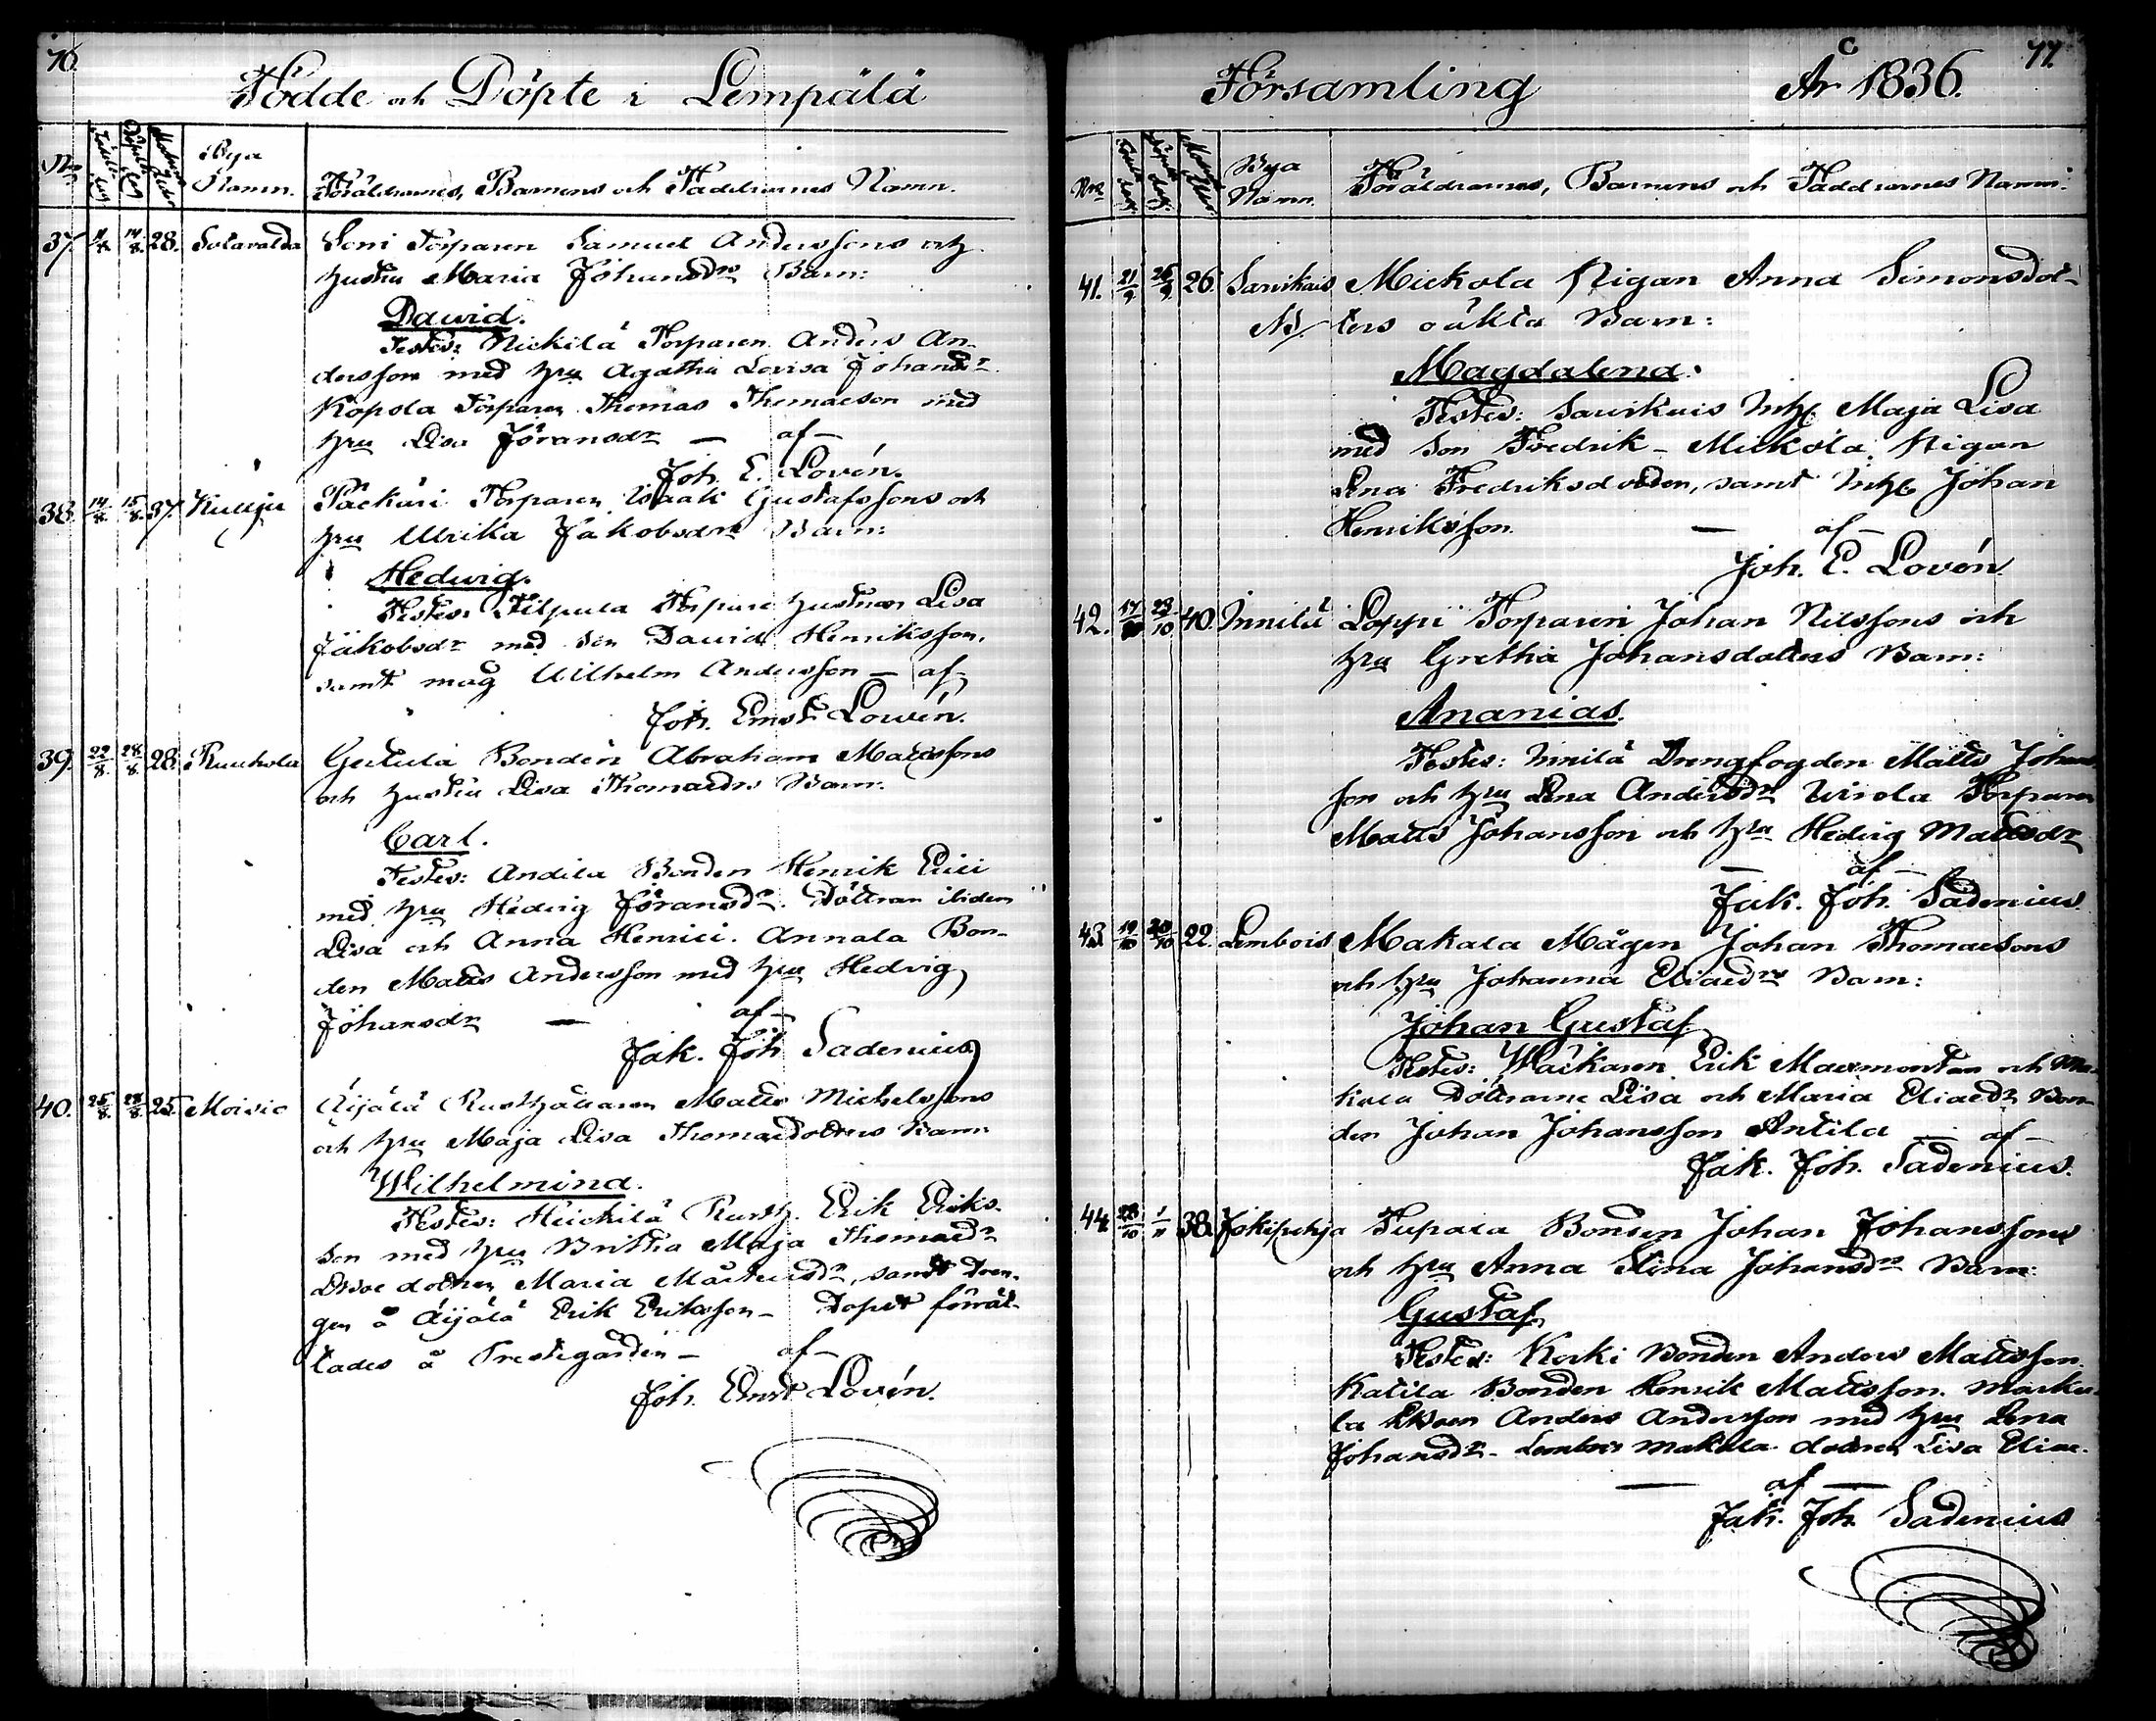 76.
Födde och Döpte i Lempälä
Nro Födelse dag Döpelse dag Modrens ålder Bya Namn. Föräldrarnes, Barnens och Faddrarnes Namn.
37. 11/8. 14/8. 28. Sotavalda Soni Torparen Samuel Anderssons och
hustru Maria Johansdrs Barn:
David.
Testes: Nickilä Torparen Anders An-
dersson med hru Agatha Lovisa Johansdr.
Kopola Torparen Thomas Thomaeson med
hru Lisa Göransdr — af —
Joh. E. Lovén.
38. 14/8. 15/8. 37. Kulju Päckäri Torparen Isaak Gustafssons och
hru Ulrika Jakobsdrs Barn:
Hedwig.
Testes: Torpare hustrun Lisa
Jakobsdr med son David Henriksson,
samt måg Wilhelm Andersson — af
Joh. Ernst Lowén.
39. 22/8. 28/8. 28. Ruuhola Bonden Abraham Mattssons
och hustru Lisa Thomaedrs Barn:
Carl.
Testes: Andila Bonden Henrik Erici
med hru Hedvig Göransdr. Döttrarn ibidem
Lisa och Anna Henrici. Annala Bon-
den Matts Andersson med hru Hedvig
Johansdr — af —
Jak. Joh. Sadenius
40. 25/8. 28/8. 25. Moisio Äijälä Rusthållaren Matts Michelssons
och hru Maja Lisa Thomaedotters Barn:
Wilhelmina.
Testes: Heickilä Rusth. Erik Eriks-
son med hru Britha Maja Thomaedr
dottren Maria Mårtensdr, samt Dren-
gen å Äijälä Erik Eriksson — Dopet förrät-
tades å Prestegården — af —
Joh. Ernst Lovén.
77.
Församling År 1836.
Nro Födelse dag Döpelse dag Modrens ålder Bya Namn. Föräldrarnes, Barnens och Faddrarnes Namn.
41. 21/9. 25/9. 26. Sarvikais Mickola Pigan Anna Simonsdot-
ters oäkta Barn:
Magdalena.
Testes: Sarvikais Inh. Maja Lisa
med son Fredrik — Mickola Pigan
Lena Fredriksdotter, samt Inh. Johan
Henriksson. — af —
Joh. E. Lovén.
42. 17/10 23/10 40. Innilä Loppi Torparen Johan Nilssons och
hru Gretha Johansdotters Barn:
Ananias.
Testes: Innilä Drengfogden Matts Johans-
son och hru Lena Andersdr Torparen
Matts Johansson och hru Hedvig Mattsdr
— af —
Jak. Joh. Sadenius.
43. 19/10 23/10 22. Lembois Makala Mågen Johan Thomaesons
och hru Johanna Eliaedrs Barn:
Johan Gustaf
Testes: Erik och Ma-
kala Döttrarne Lisa och Maria Eliaedr Bon-
den Johan Johansson Antila — af —
Jak. Joh. Sadenius.
44. 28/10 1/11 38. Jokipohja Tupala Bonden Johan Johanssons
och hru Anna Stina Johansdrs Barn:
Gustaf.
Testes: Korki Bonden Anders Mattsson.
Katila Bonden Henrik Mattsson. Marku-
la Anders Andersson med hru Lena
Johansdr — Lembois Makala dottren Lisa Eliae.
— af —
Jak. Joh. Sadenius